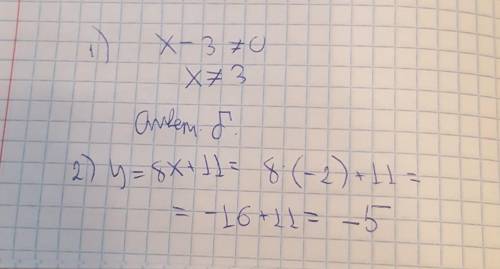 1) x - 3 ≠ 0
x ≠ 3
Ответ: Б.
2) y = 8x + 11 = 8·(-2) + 11 =
= -16 + 11 = -5